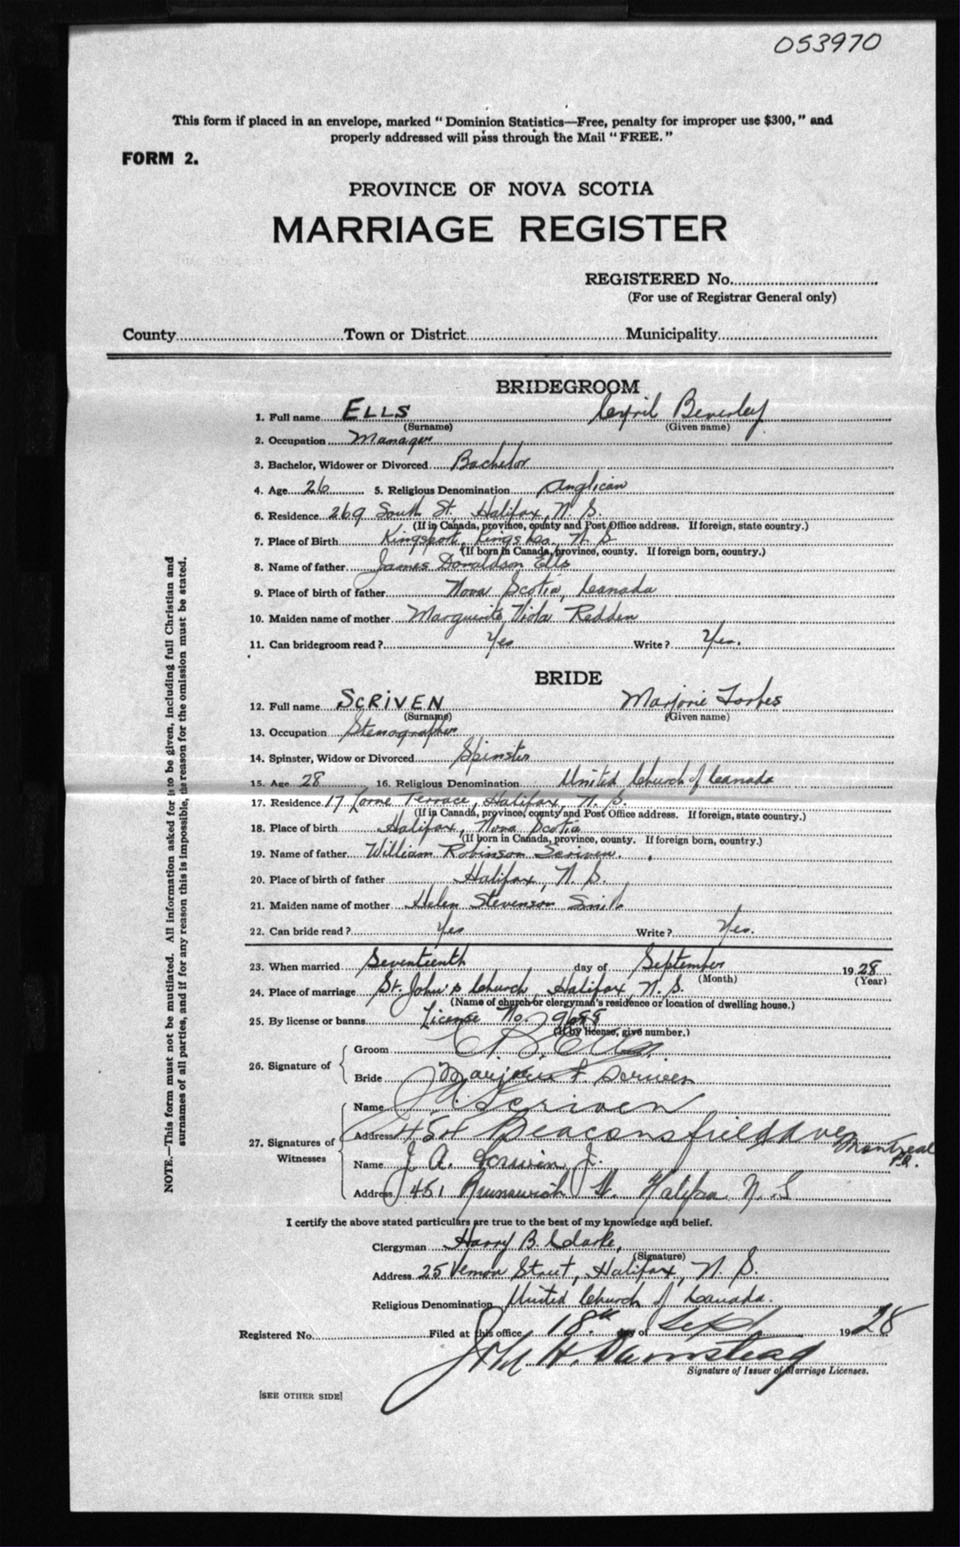 053970
This form if placed in an envelope, marked "Dominion Statistics—Free, penalty for improper use $300," and
properly addressed will pass through the Mail "FREE."
FORM 2.
PROVINCE OF NOVA SCOTIA
MARRIAGE REGISTER
REGISTERED No.
(For use of Registrar General only)
County Town or District Municipality
BRIDEGROOM
1. Full name ELLS Cyril Beverley
(Surname) (Given name)
2. Occupation Manager
3. Bachelor, Widower or Divorced Bachelor
4. Age 26 5. Religious Denomination Anglican
6. Residence 269 South St. Halifax, N. S.
(If in Canada, province, county and Post Office address. If foreign, state country.)
7. Place of Birth Kingsport, Kings Co. N. S
(If born in Canada, province, county. If foreign born, country.)
8. Name of father James Donaldson Ells
9. Place of birth of father Nova Scotia, Canada
10. Maiden name of mother Marguerite Viola Redden
11. Can bridegroom read? Yes Write? Yes.
BRIDE
12. Full name SCRIVEN Marjorie Forbes
(Surname) (Given name)
13. Occupation Stenographer
14. Spinster, Widow or Divorced Spinster
15. Age 28 16. Religious Denomination United Church of Canada
17. Residence 17 Lorne Terrace, Halifax, N. S.
(If in Canada, province, county and Post Office address. If foreign, state country.)
18. Place of birth Halifax, Nova Scotia
(If born in Canada, province, county. If foreign born, country.)
19. Name of father William Robinson Scriven.
20. Place of birth of father Halifax, N. S.
21. Maiden name of mother Helen Stevenson Smith
22. Can bride read? Yes Write? Yes.
23. When married Seventeenth day of September 1928
(Month) (Year)
24. Place of marriage St. John's Church, Halifax, N. S.
(Name of church or clergyman's residence or location of dwelling house.)
25. By license or banns License No. 9688
(If by license, give number.)
26. Signature of
Groom C. B. Ells.
Bride Marjorie F. Scriven
27. Signatures of Witnesses
Name J A Scriven
Address 454 Beaconsfield Ave Montreal P.Q.
Name J. A. Scriven Jr.
Address 451 Brunswick St. Halifax N. S
I certify the above stated particulars are true to the best of my knowledge and belief.
Clergyman Harry B. Clarke,
(Signature)
Address 25 Vernon Street, Halifax, N. S.
Religious Denomination United Church of Canada.
Registered No. Filed at this office 18th day of Sept 1928
John H. Barnstead
Signature of Issuer of Marriage Licenses.
[SEE OTHER SIDE]
NOTE.—This form must not be mutilated. All information asked for is to be given, including full Christian and
surnames of all parties, and if for any reason this is impossible, the reason for the omission must be stated.